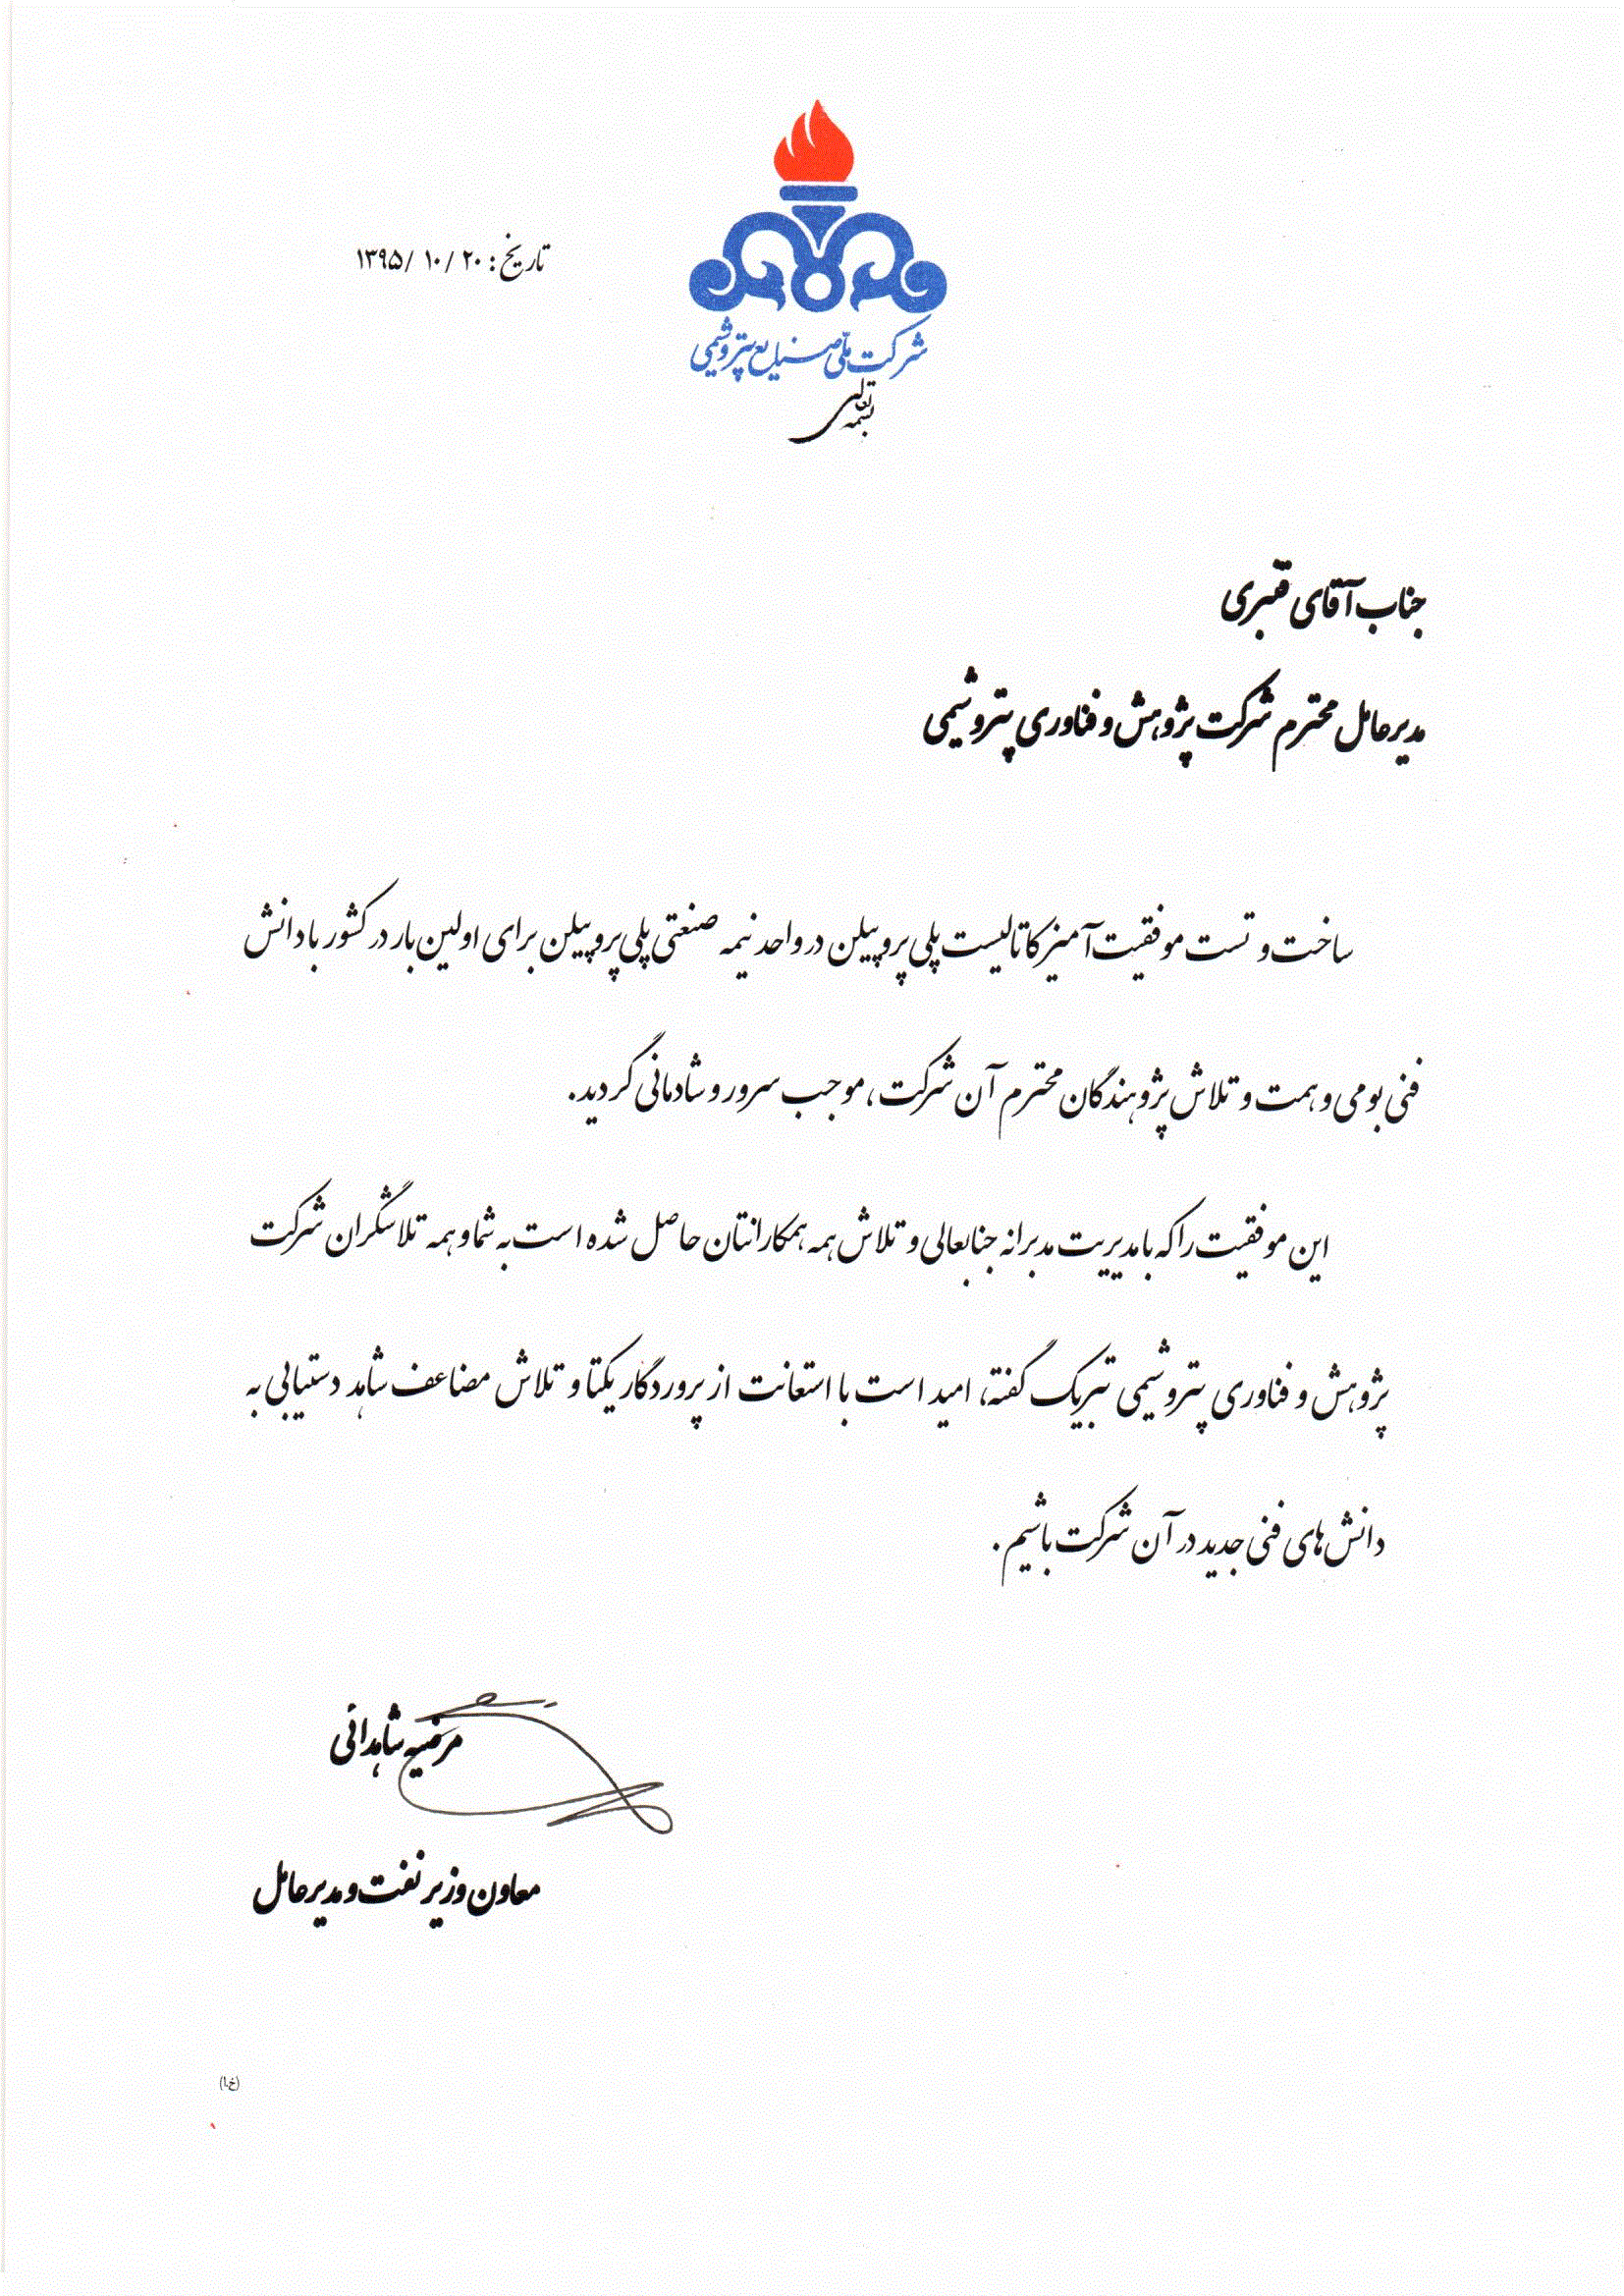 تاریخ: ۱۳۹۵/۱۰/۲۰
شرکت ملی صنایع پتروشیمی
بسمه تعالی
جناب آقای قنبری
مدیرعامل محترم شرکت پژوهش و فناوری پتروشیمی
ساخت و تست موفقیت آمیز کاتالیست پلی پروپیلن در واحد نیمه صنعتی پلی پروپیلن برای اولین بار در کشور با دانش
فنی بومی و همت و تلاش پژوهندگان محترم آن شرکت، موجب سرور و شادمانی گردید.
این موفقیت را که با مدیریت مدبرانه جنابعالی و تلاش همه همکارانتان حاصل شده است به شما و همه تلاشگران شرکت
پژوهش و فناوری پتروشیمی تبریک گفته، امید است با استعانت از پروردگار یکتا و تلاش مضاعف شاهد دستیابی به
دانش های فنی جدید در آن شرکت باشیم.
مرضیه شاهدائی
معاون وزیر نفت و مدیرعامل
(خ.ا)